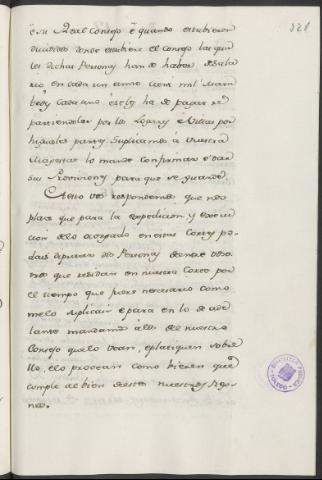 321
è su Real Consejo è quando estubieren
divididos donde estubiere el consejo las qua
les dichas Personas han de haber de sala
rio en cada un año cien mil mara
bedis cada uno è selos ha de pagar re
partiendolos por los Lugares è Villas por
iguales partes. Suplicamos à Vuestra
Magestad lo mande confirmar è dar
sus Provisiones para que se guarde.
A esto vos respondemos que nos
place que para la expedicion y execu
cion delo acordado en estas Cortes po
dais diputar dos Personas de entre voso
tros que residan en nuestra Corte por
el tiempo que fuere necesario como
me lo suplicais è para en lo de ade
lante mandamos à los del nuestro
Consejo que lo vean, è platiquen sobre
ello, è lo provean como vieren que
cumple al bien destos nuestros Reg
nos.
BIBLIOTECA PUBLICA
TOLEDO